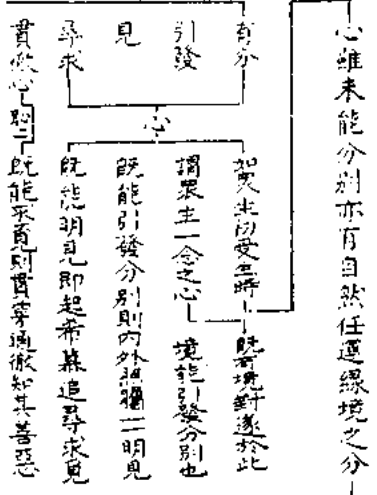 心雖未能分別亦有自然任運緣境之分
有分
引發
見
尋求
貫徹心
心
如眾生初受生時
既有境對遂於此
謂眾生一念之心
境能引發分別也
既能引發分別則內外照矚一一明見
既能明見即起希慕追尋求覓
既能求覓則貫穿通徹知其善惡